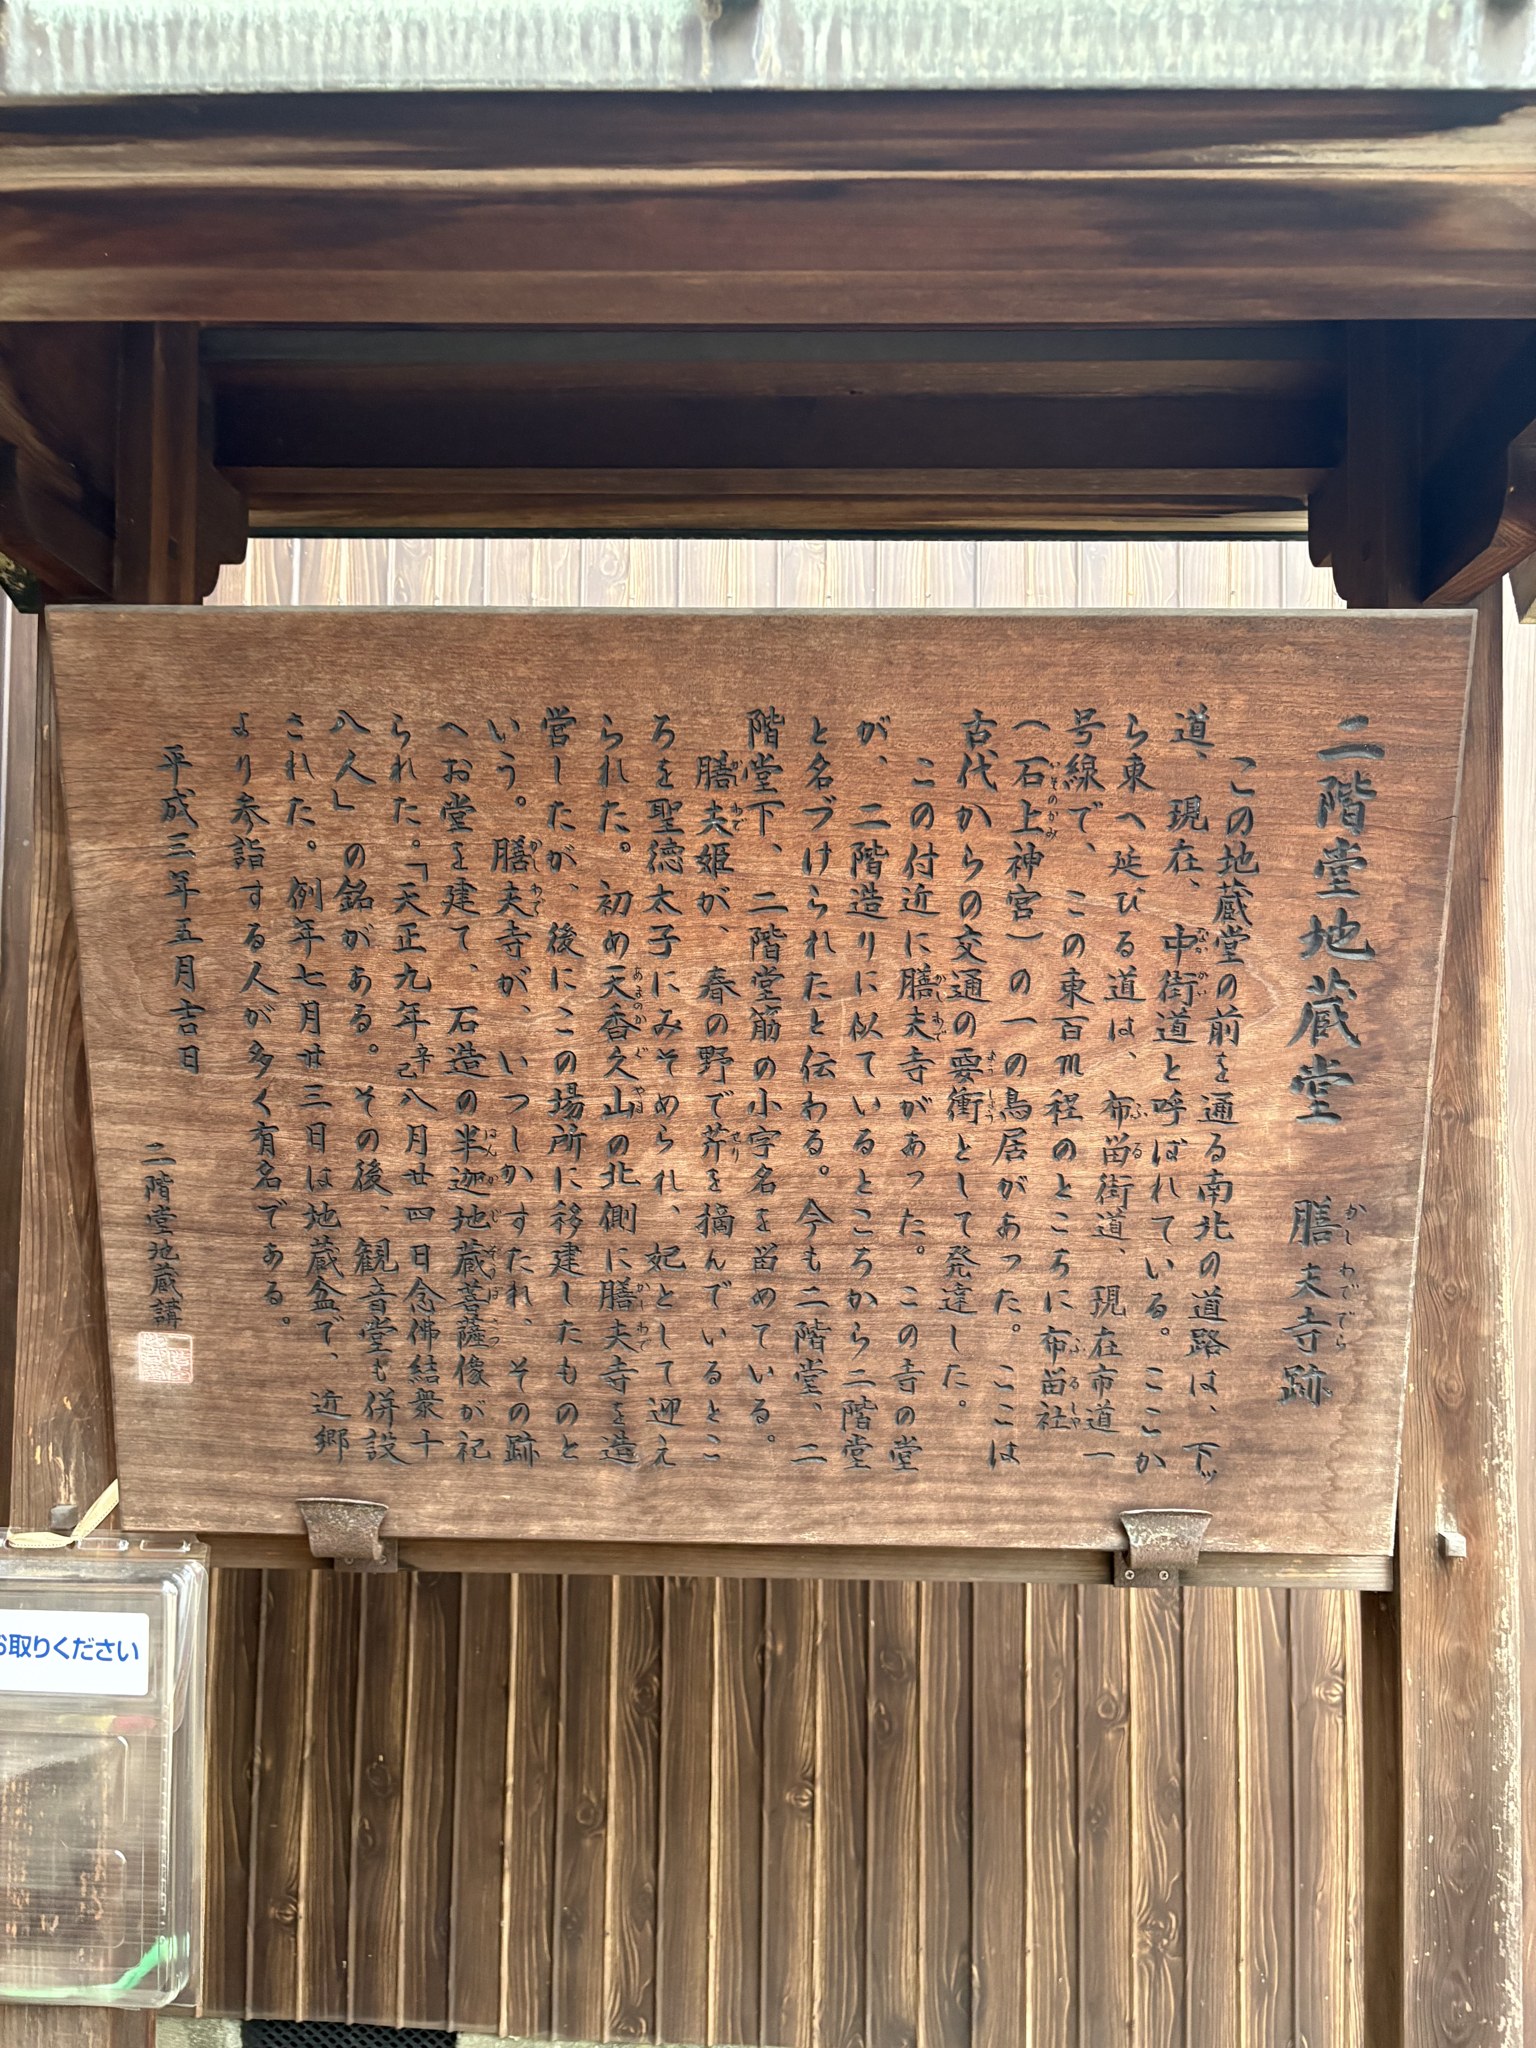 二階堂地蔵堂　膳夫寺跡
かしわででら
この地蔵堂の前を通る南北の道路は、下ッ
道、現在、中街道と呼ばれている。ここか
なかかい
ら東へ延びる道は、布留街道、現在市道一
ふる
号線で、この東百m程のところに布留社
ふるしゃ
(石上神宮)の一の鳥居があった。ここは
いそのかみ
古代からの交通の要衝として発達した。
ようしょう
この付近に膳夫寺があった。この寺の堂
かしわで
が、二階造りに似ているところから二階堂
と名づけられたと伝わる。今も二階堂、二
階堂下、二階堂筋の小字名を留めている。
膳夫姫が、春の野で芹を摘んでいるとこ
かしわで
せり
ろを聖徳太子にみそめられ、妃として迎え
られた。初め天香久山の北側に膳夫寺を造
あまのかぐやま
かしわで
営したが、後にこの場所に移建したものと
いう。膳夫寺が、いつしかすたれ、その跡
かしわで
へお堂を建て、石造の半迦地蔵菩薩像が祀
はんかじぞうぼさつ
られた。「天正九年辛巳八月廿四日念佛結衆十
八人」の銘がある。その後、観音堂も併設
された。例年七月廿三日は地蔵盆で、近郷
より参詣する人が多く有名である。
平成三年五月吉日
二階堂地蔵講
お取りください